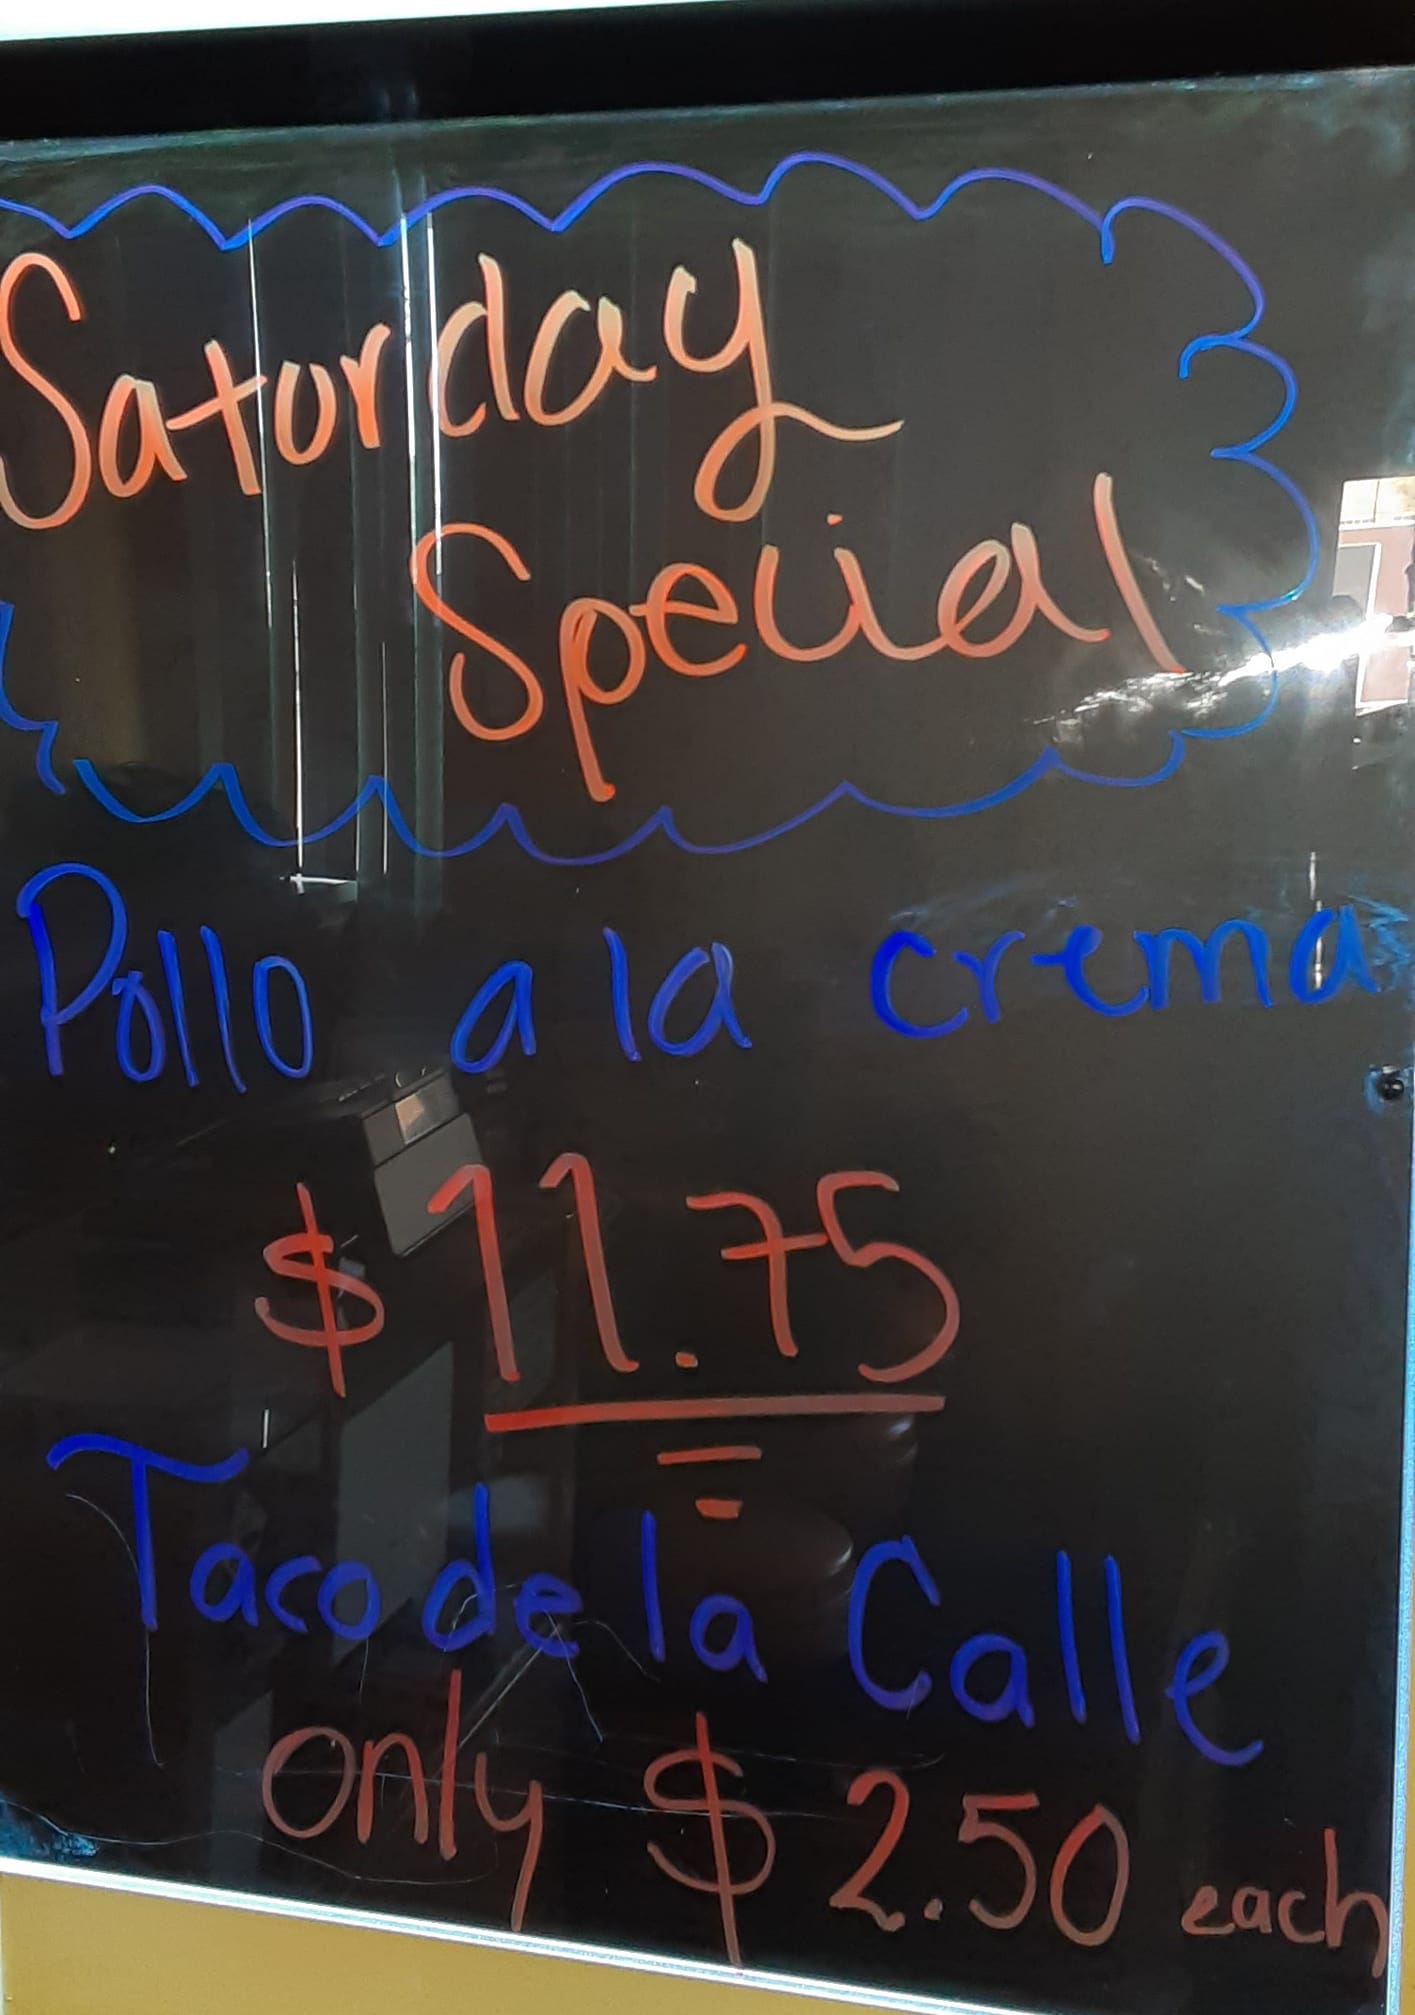 Saturday
Special
Pollo a la crema
$ 11.75
Taco de la Calle
only $ 2.50 each